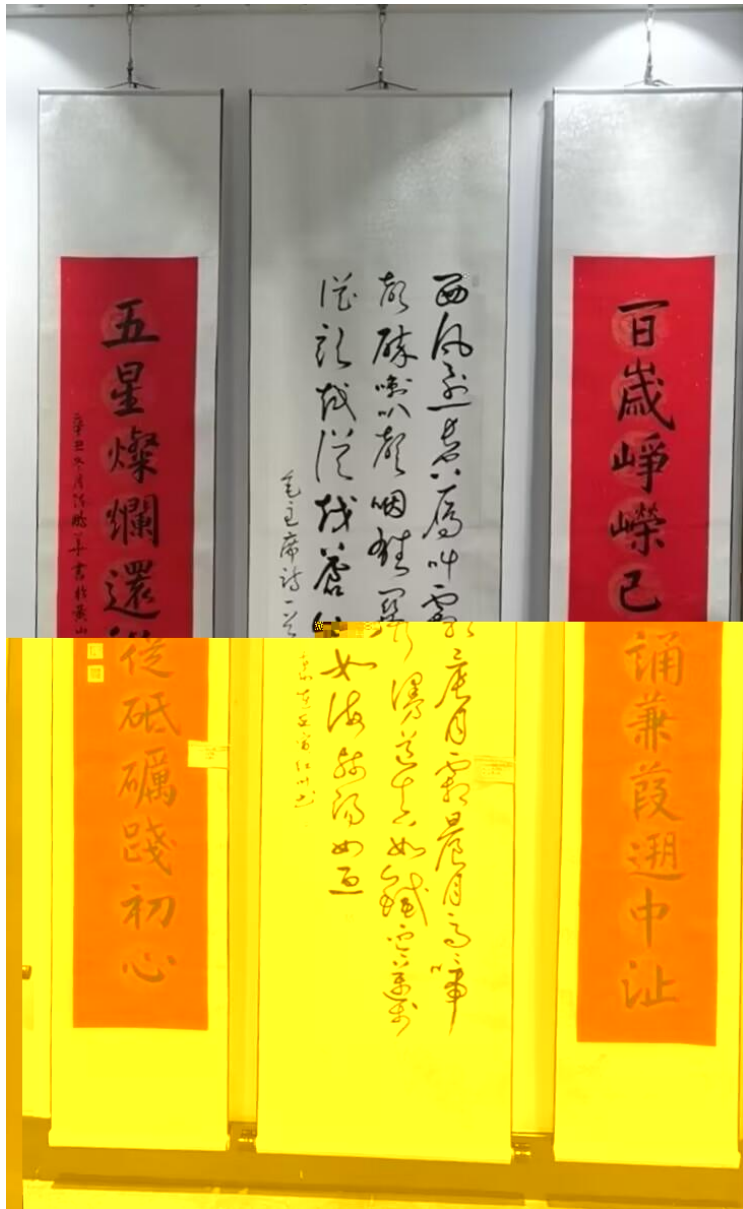 百歲崢嶸已誦蒹葭遡中沚
西風烈長空雁叫霜晨月霜晨月馬蹄
聲碎喇叭聲咽雄關漫道真如鐵而今邁步
從頭越從頭越蒼山如海殘陽如血
毛主席詩一首
五星燦爛還從砥礪踐初心